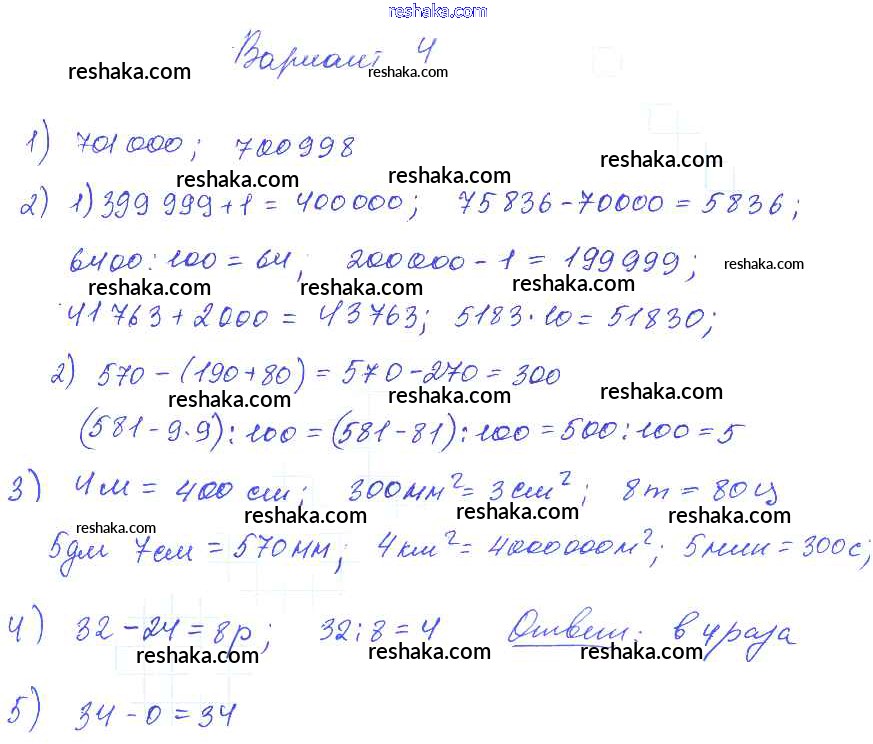 reshaka.com
Вариант 4
reshaka.com reshaka.com
1) 701 000; 700 998
reshaka.com reshaka.com reshaka.com
2) 1) 399 999 + 1 = 400 000; 75 836 - 70000 = 5836;
6400 : 100 = 64; 200 000 - 1 = 199 999;
reshaka.com reshaka.com reshaka.com reshaka.com
41 763 + 2 000 = 43 763; 5183 · 10 = 51830;
2) 570 - (190 + 80) = 570 - 270 = 300
reshaka.com reshaka.com reshaka.com
(581 - 9 · 9) : 100 = (581 - 81) : 100 = 500 : 100 = 5
3) 4 м = 400 см; 300 мм² = 3 см²; 8 т = 80 ц
reshaka.com reshaka.com reshaka.com reshaka.com
5 дм 7 см = 570 мм; 4 км² = 4000000 м²; 5 мин = 300 с;
4) 32 - 24 = 8 р; 32 : 8 = 4 Ответ: в 4 раза
reshaka.com reshaka.com reshaka.com
5) 34 - 0 = 34